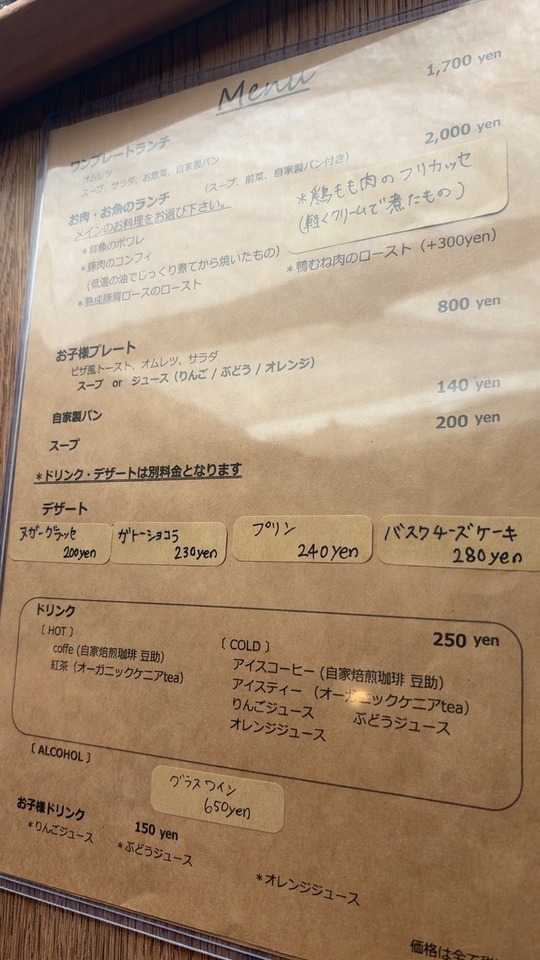 Menu
ワンプレートランチ 1,700 yen
オムレツ
スープ、サラダ、お惣菜、自家製パン
お肉・お魚のランチ （スープ、前菜、自家製パン付き） 2,000 yen
メインのお料理をお選び下さい。
＊鮮魚のポワレ
＊鶏もも肉のフリカッセ
（軽くクリームで煮たもの）
＊豚肉のコンフィ
（低温の油でじっくり煮てから焼いたもの）
＊鴨むね肉のロースト（+300yen）
＊熟成豚肩ロースのロースト
お子様プレート 800 yen
ピザ風トースト、オムレツ、サラダ
スープ or ジュース（りんご / ぶどう / オレンジ）
自家製パン 140 yen
スープ 200 yen
＊ドリンク・デザートは別料金となります
デザート
ヌガーグラッセ 200yen
ガトーショコラ 230yen
プリン 240yen
バスクチーズケーキ 280yen
ドリンク 250 yen
〔 HOT 〕
coffe (自家焙煎珈琲 豆助）
紅茶（オーガニックケニアtea）
〔 COLD 〕
アイスコーヒー (自家焙煎珈琲 豆助）
アイスティー （オーガニックケニアtea）
りんごジュース ぶどうジュース
オレンジジュース
〔 ALCOHOL 〕
グラスワイン
650yen
お子様ドリンク 150 yen
＊りんごジュース ＊ぶどうジュース ＊オレンジジュース
価格は全て